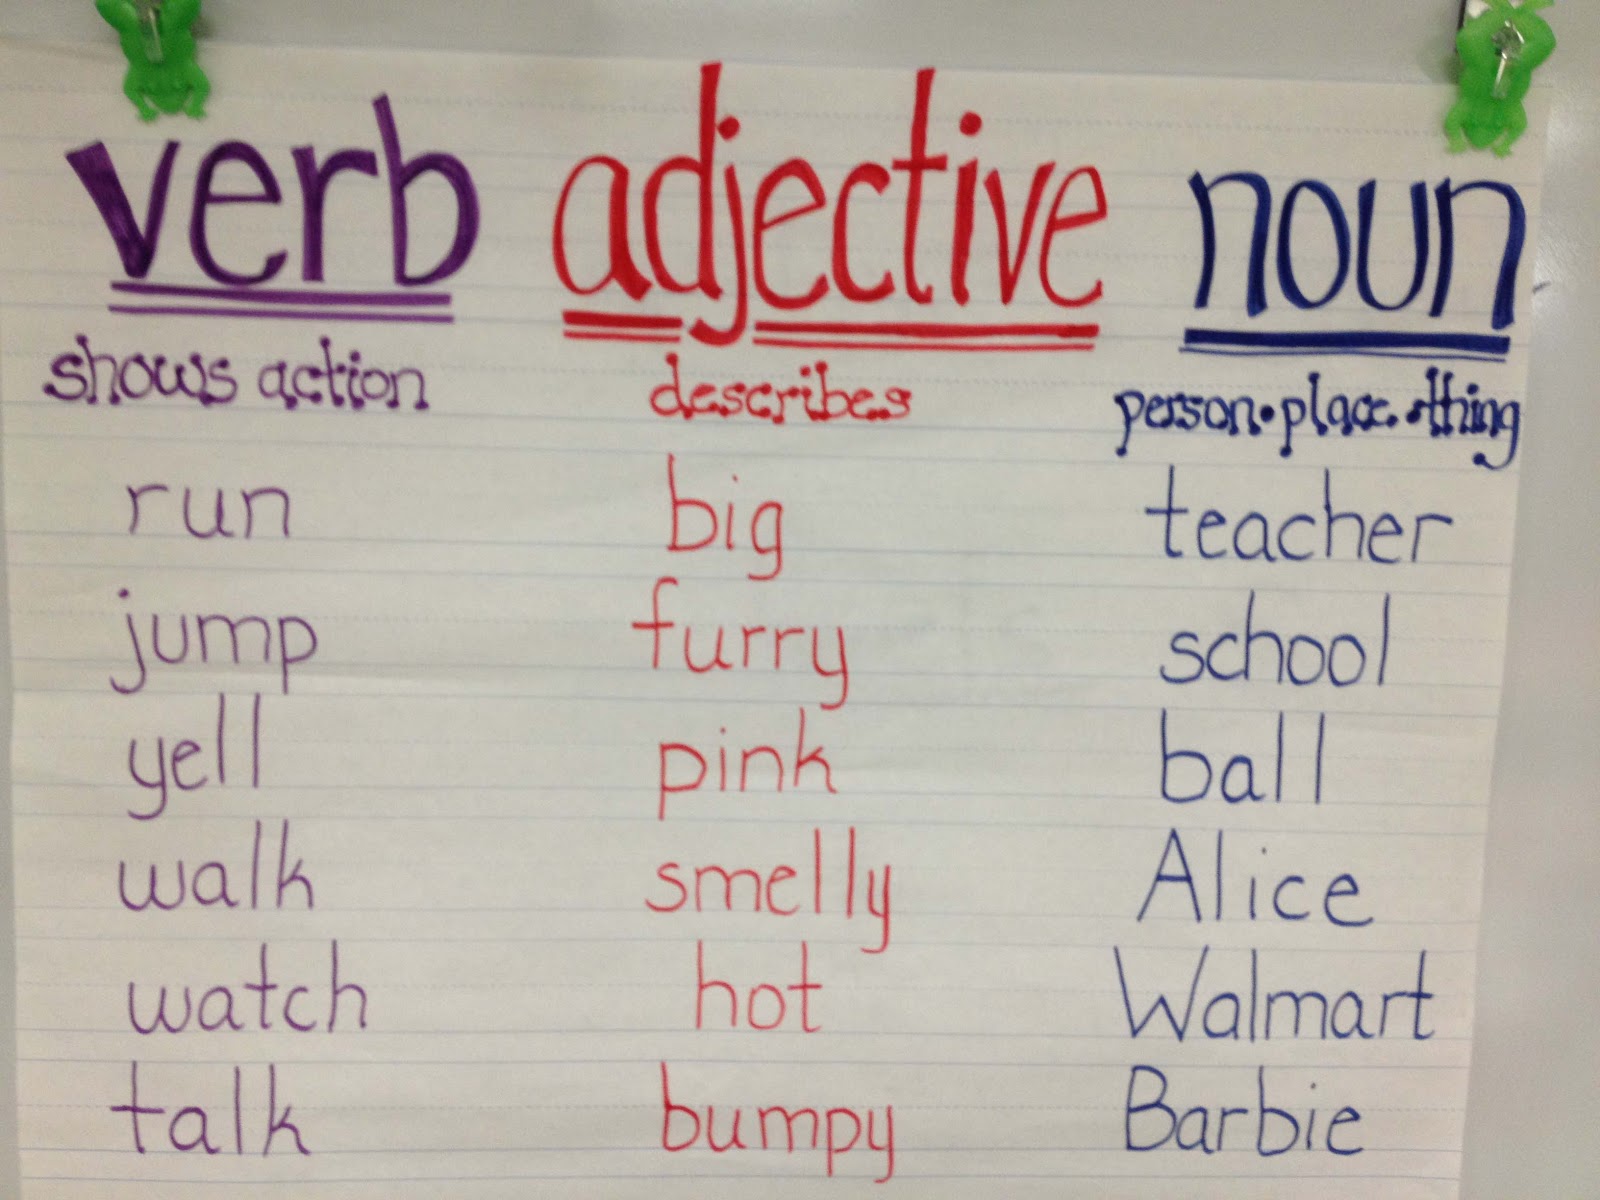 verb adjective noun
shows action describes person • place • thing
run big teacher
jump furry school
yell pink ball
walk smelly Alice
watch hot Walmart
talk bumpy Barbie